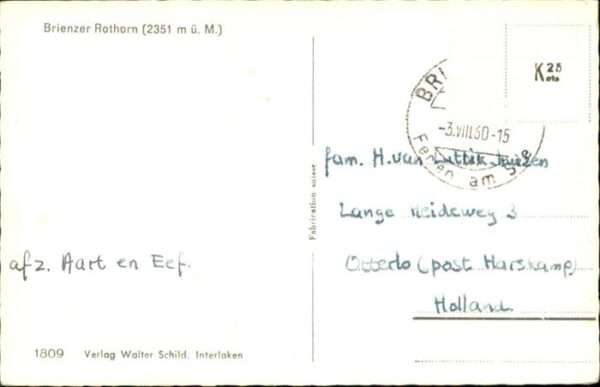 Brienzer Rothorn (2351 m ü. M.)
BRI
K 25
cts
-3.VIII.60-15
Ferien am See
fam. H. van
Lange Heideweg 3
Otterlo (post Harskamp)
Holland
afz. Aart en Eef.
Fabrication suisse
1809 Verlag Walter Schild, Interlaken